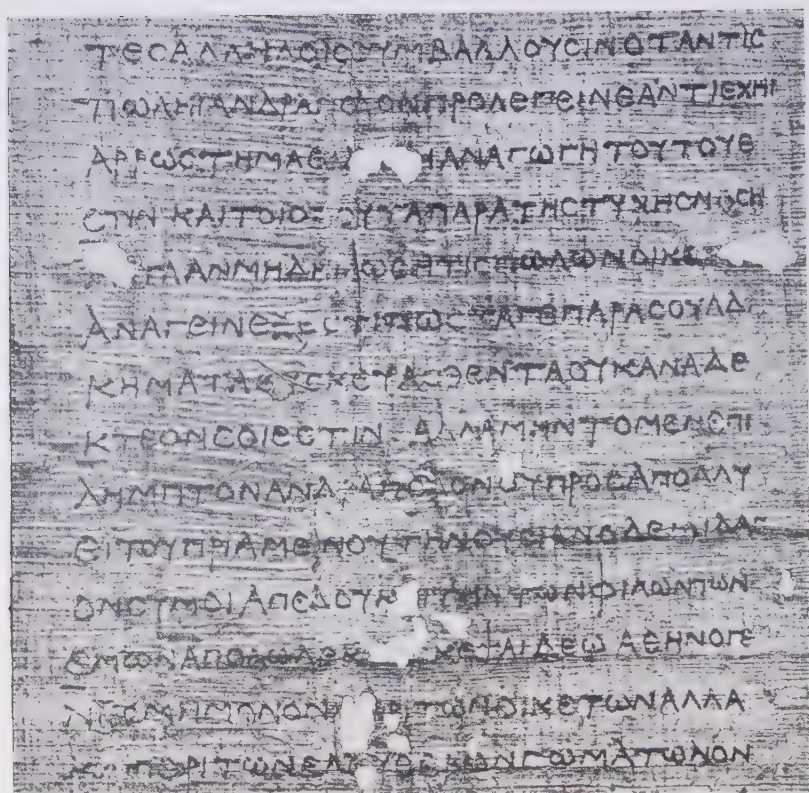 ΤΕCΑΛΛΗΛΟΙCCΥΜΒΑΛΛΟΥCΙΝΟΤΑΝΤΙC
ΠΩΛΗΙΑΝΔΡΑΠΟΔΟΝΠΡΟΛΕΓΕΙΝΕΑΝΤΙΕΧΗΙ
ΑΡΡΩCΤΗΜΑΕΙ ΗΑΝΑΓΩΓΗΤΟΥΤΟΥΕ
CΤΙΝΚΑΙΤΟΙΟΠΟΥΤΑΠΑΡΑΤΗCΤΥΧΗCΝΟCΗ
ΤΑΑΝΜΗΔΗΛΩCΗΤΙCΠΩΛΩΝΟΙΚΕ
ΑΝΑΓΕΙΝΕΞΕCΤΙΠΩCΤΑΓΕΠΑΡΑCΟΥΑΔΙ
ΚΗΜΑΤΑCΥCΚΕΥΑCΘΕΝΤΑΟΥΚΑΝΑΔΕ
ΚΤΕΟΝCΟΙΕCΤΙΝ ΑΛΛΑΜΗΝΤΟΜΕΝΕΠΙ
ΛΗΜΠΤΟΝΑΝΔΡΑΠΟΔΟΝΟΥΠΡΟCΑΠΟΛΛΥ
ΕΙΤΟΥΠΡΙΑΜΕΝΟΥΤΗΝΟΥCΙΑΝΟΔΕΜΙΔΑC
ΟΝCΥΜΟΙΑΠΕΔΟΥΚ ΤΗΝΤΩΝΦΙΛΩΝΤΩΝ
ΕΜΩΝΑΠΟΛΩΛΕΚΕ ΚΕΨΑΙΔΕΩΑΘΗΝΟΓΕ
ΝΕCΜΗΜΟΝΟΝ ΡΙΤΩΝΟΙΚΕΤΩΝΑΛΛΑ
ΚΑΙΠΕΡΙΤΩΝΕΛΕΥΘΕΡΩΝCΩΜΑΤΩΝΟΝ